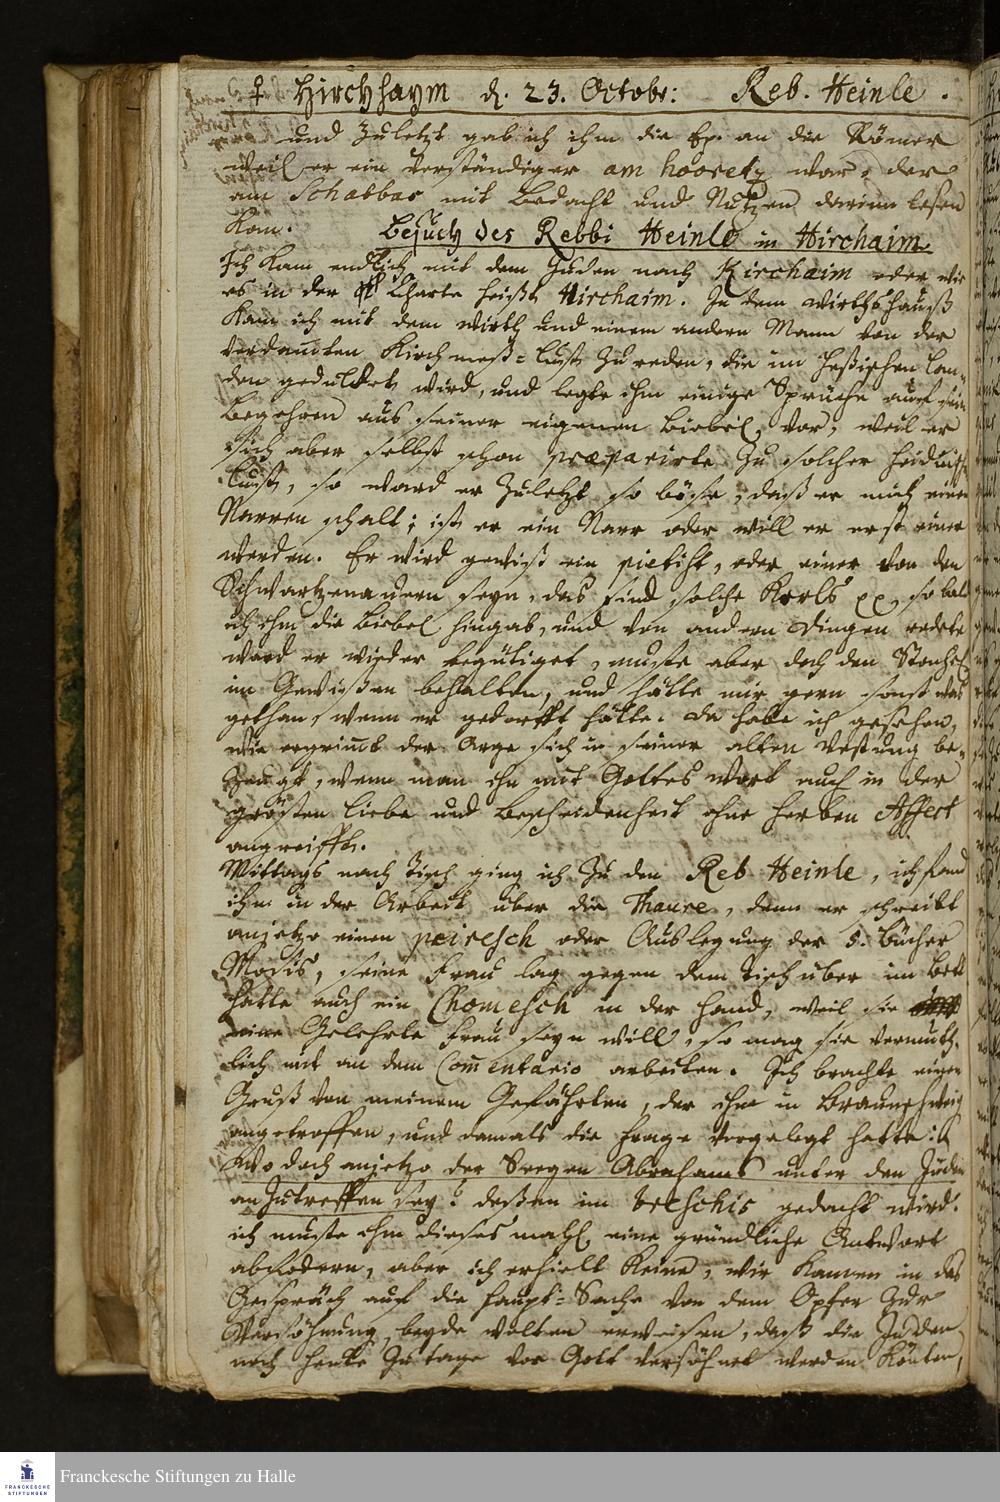 ♀ Hirchhaym d. 23. Octobr: Reb. Heinle.
und zuletzt gab ich ihm die Ep. an die Römer
weil er ein verständiger am hooretz war, der
am Schabbas mit Bedacht und Nutzen darinn lesen
kan. Besuch des Rebbi Heinle in Hirchaim.
Ich kam endlich mit dem Juden nach Kirchaim oder wie
es in der Charte heißt Hirchaim. In dem Wirthshauß
kam ich mit dem Wirth und einem andern Mann von der
verdamten Kirchmeß-Lust zu reden, die im Heßischen Lan-
den geduldet wird, und legte ihm einige Sprüche auf sein
Begehren aus seiner eigenen Biebel, vor, weil er
sich aber selbst schon præparirte zu solcher heidnisch
Lust, so ward er zuletzt so böse, daß er mich einen
Narren schalt; ist er ein Narr oder will er erst einer
werden. Er wird gewiß ein pietist, oder einer von den
Schwartzenauern seyn, das sind solche Kerls pp, so bald
ich ihm die Biebel hingab, und von andern Dingen redete
ward er wieder begütiget, muste aber doch den Stachel
im Gewißen behalten, und hätte mir gern sonst was
gethan, wenn er gedorfft hätte. da habe ich gesehen,
wie ergrimt der Arge sich in seiner alten Vestung be-
zeugt, wenn man ihn mit Gottes Wort auch in der
grösten Liebe und Bescheidenheit ohne herben Affect
angreifft.
Mittags nach Tisch ging ich zu den Reb Heinle, ich fand
ihn in der Arbeit über die Thaure, denn er schreibt
anjetzo einen peiresch oder Auslegung der 5. Bücher
Mosis, seine Frau lag gegen dem Tisch über im Bett
hatte auch ein Chomesch in der Hand, weil sie
eine Gelehrte Frau seyn will, so mag sie vermuth-
lich mit an dem Commentario arbeiten. Ich brachte einen
Gruß von meinem Gefährten, der ihn in Braunschweig
angetroffen, und damals die Frage vorgelegt hatte:
Wo doch anjetzo der Seegen Abrahams unter den Juden
anzutreffen sey? deßen im breschis gedacht wird.
ich muste ihm dieses mahl eine gründliche Antwort
abfodern, aber ich erhielt keine, wir kamen in das
Gespräch auf die Haupt-Sache von dem Opfer zur
Versöhnung, beyde wolten erweisen, daß die Juden
noch heute zu tage vor Gott versöhnet werden könten,
Franckesche Stiftungen zu Halle
FRANCKESCHE
STIFTUNGEN